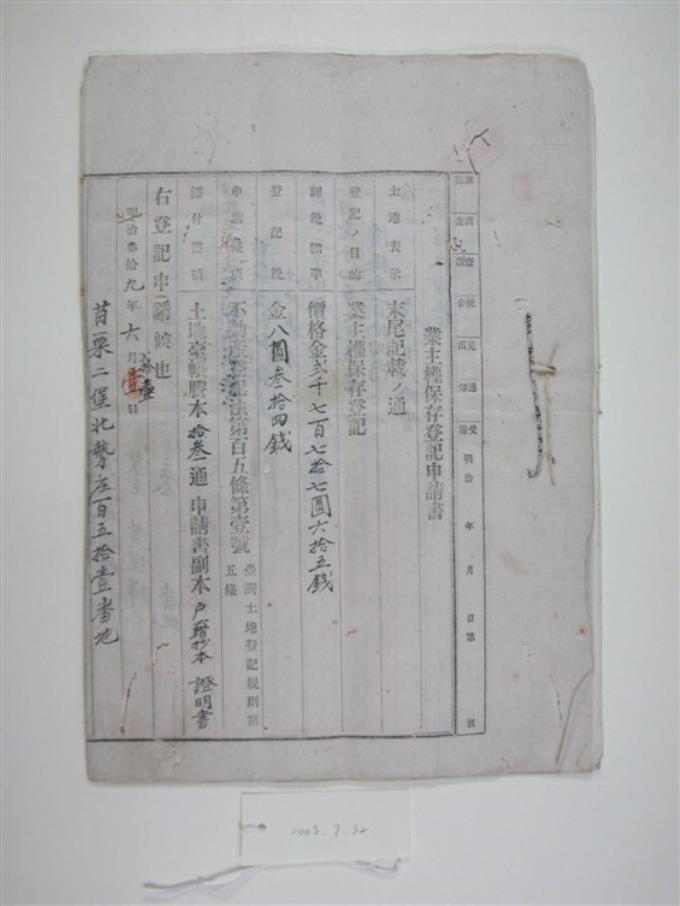 受附 明治 年 月 日第 號
業主權保存登記申請書
土地表示 末尾記載ノ通
登記ノ目的 業主權保存登記
課稅標準 價格金弍千七百七拾七圓六拾五錢
登記稅 金八圓叁拾四錢
申請條項 不動產登記法第百五條第壹號 臺灣土地登記規則第五條
添付書類 土地臺帳謄本拾叁通 申請書副本 戶籍抄本 證明書
右登記申請候也
明治參拾九年六月 壹日
苗栗二堡北勢庄百五拾壹番地
2003.7.32